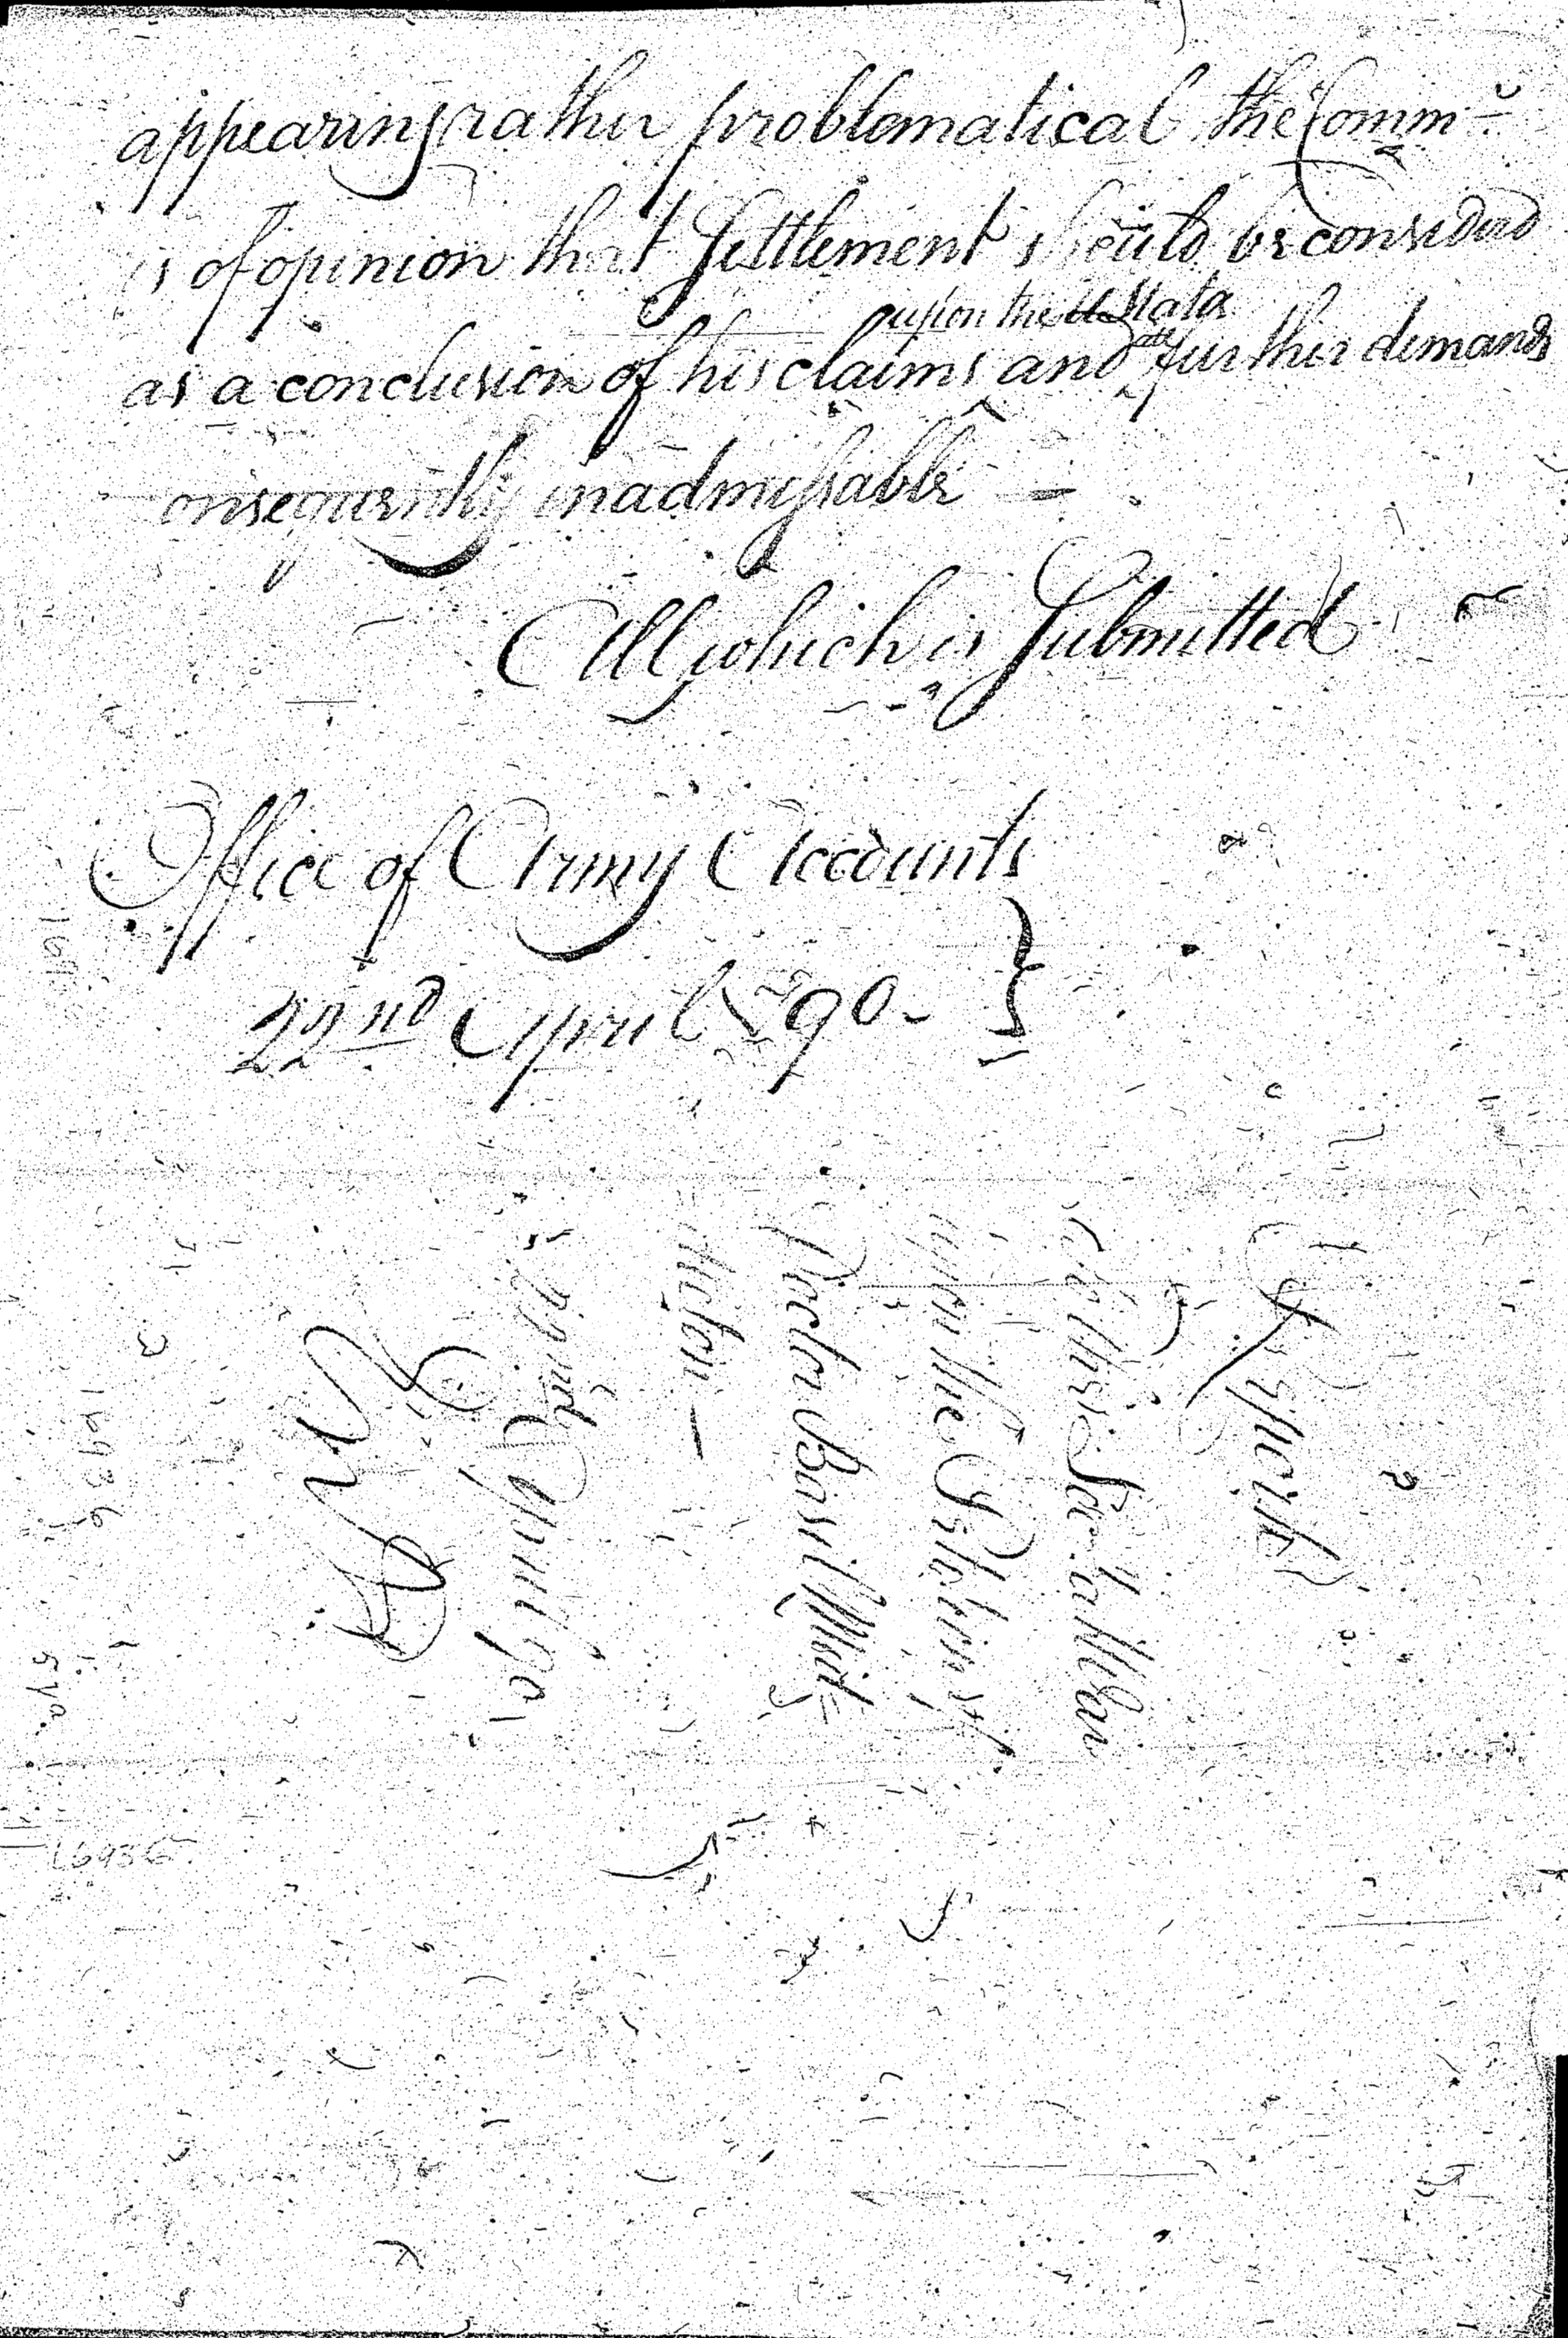 appearing rather problematical the Comm<sup>r</sup>
is of opinion that Settlement should be considered
upon the U States
as a conclusion of his claims and all further demands
onsequently inadmissable —
All which is Submitted
Office of Army Accounts
22nd April 1790 - }
Report
to the Sec'ty of War
upon the Petition of
Doctor Basil Mid=
dleton —
22nd April 90
16936
16936